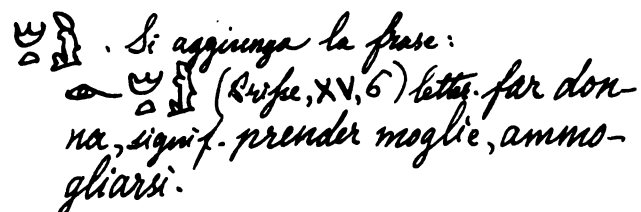 𓈞𓏏𓁐. Si aggiunga la frase:
𓁹𓈞𓏏𓁐 (Prisse, XV, 6) letter. far don-
na, signif. prender moglie, ammo-
gliarsi.